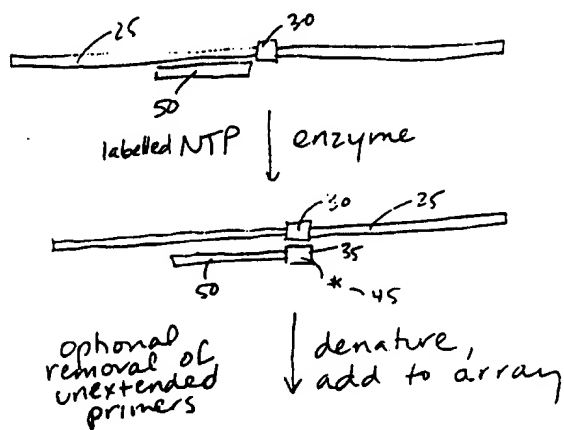 25
30
50
labelled NTP
enzyme
30
25
35
50
* ~ 45
optional
removal of
unextended
primers
denature,
add to array